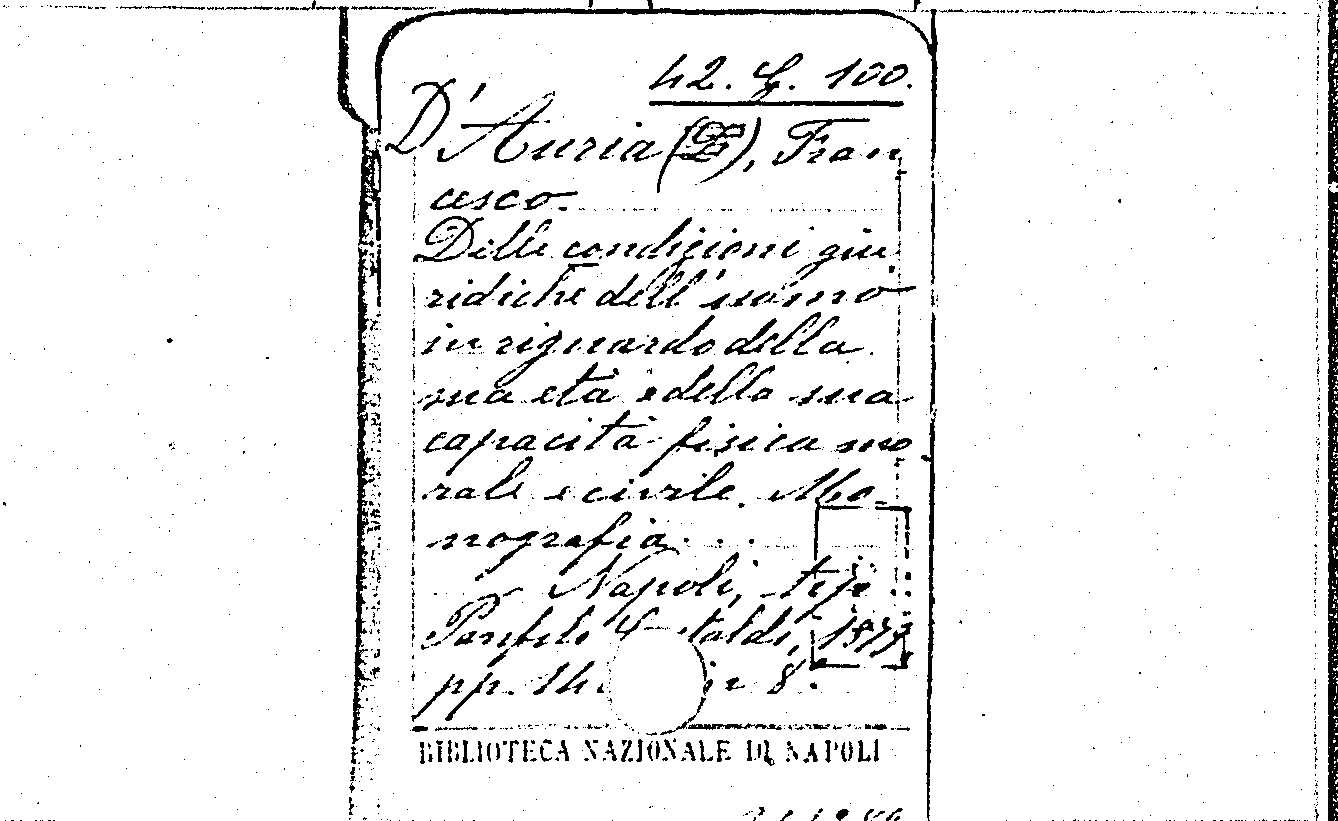 42. G. 100.
D'Auria ( ), Fran
cesco.
Delle condizioni giu
ridiche dell'uomo
in riguardo della
sua età e della sua
capacità fisica mo
rale e civile. Mo-
nografia...
Napoli, tip.
Panfilo 1877,
pp. in 8.
BIBLIOTECA NAZIONALE DI NAPOLI